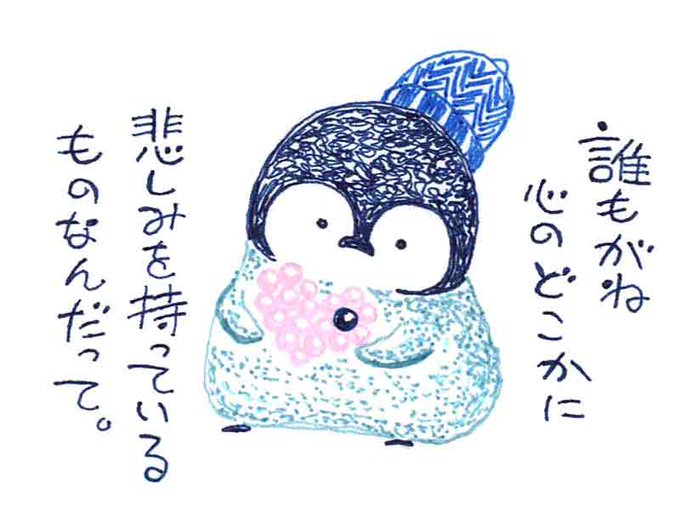 誰もがね
心のどこかに
悲しみを持っている
ものなんだって。